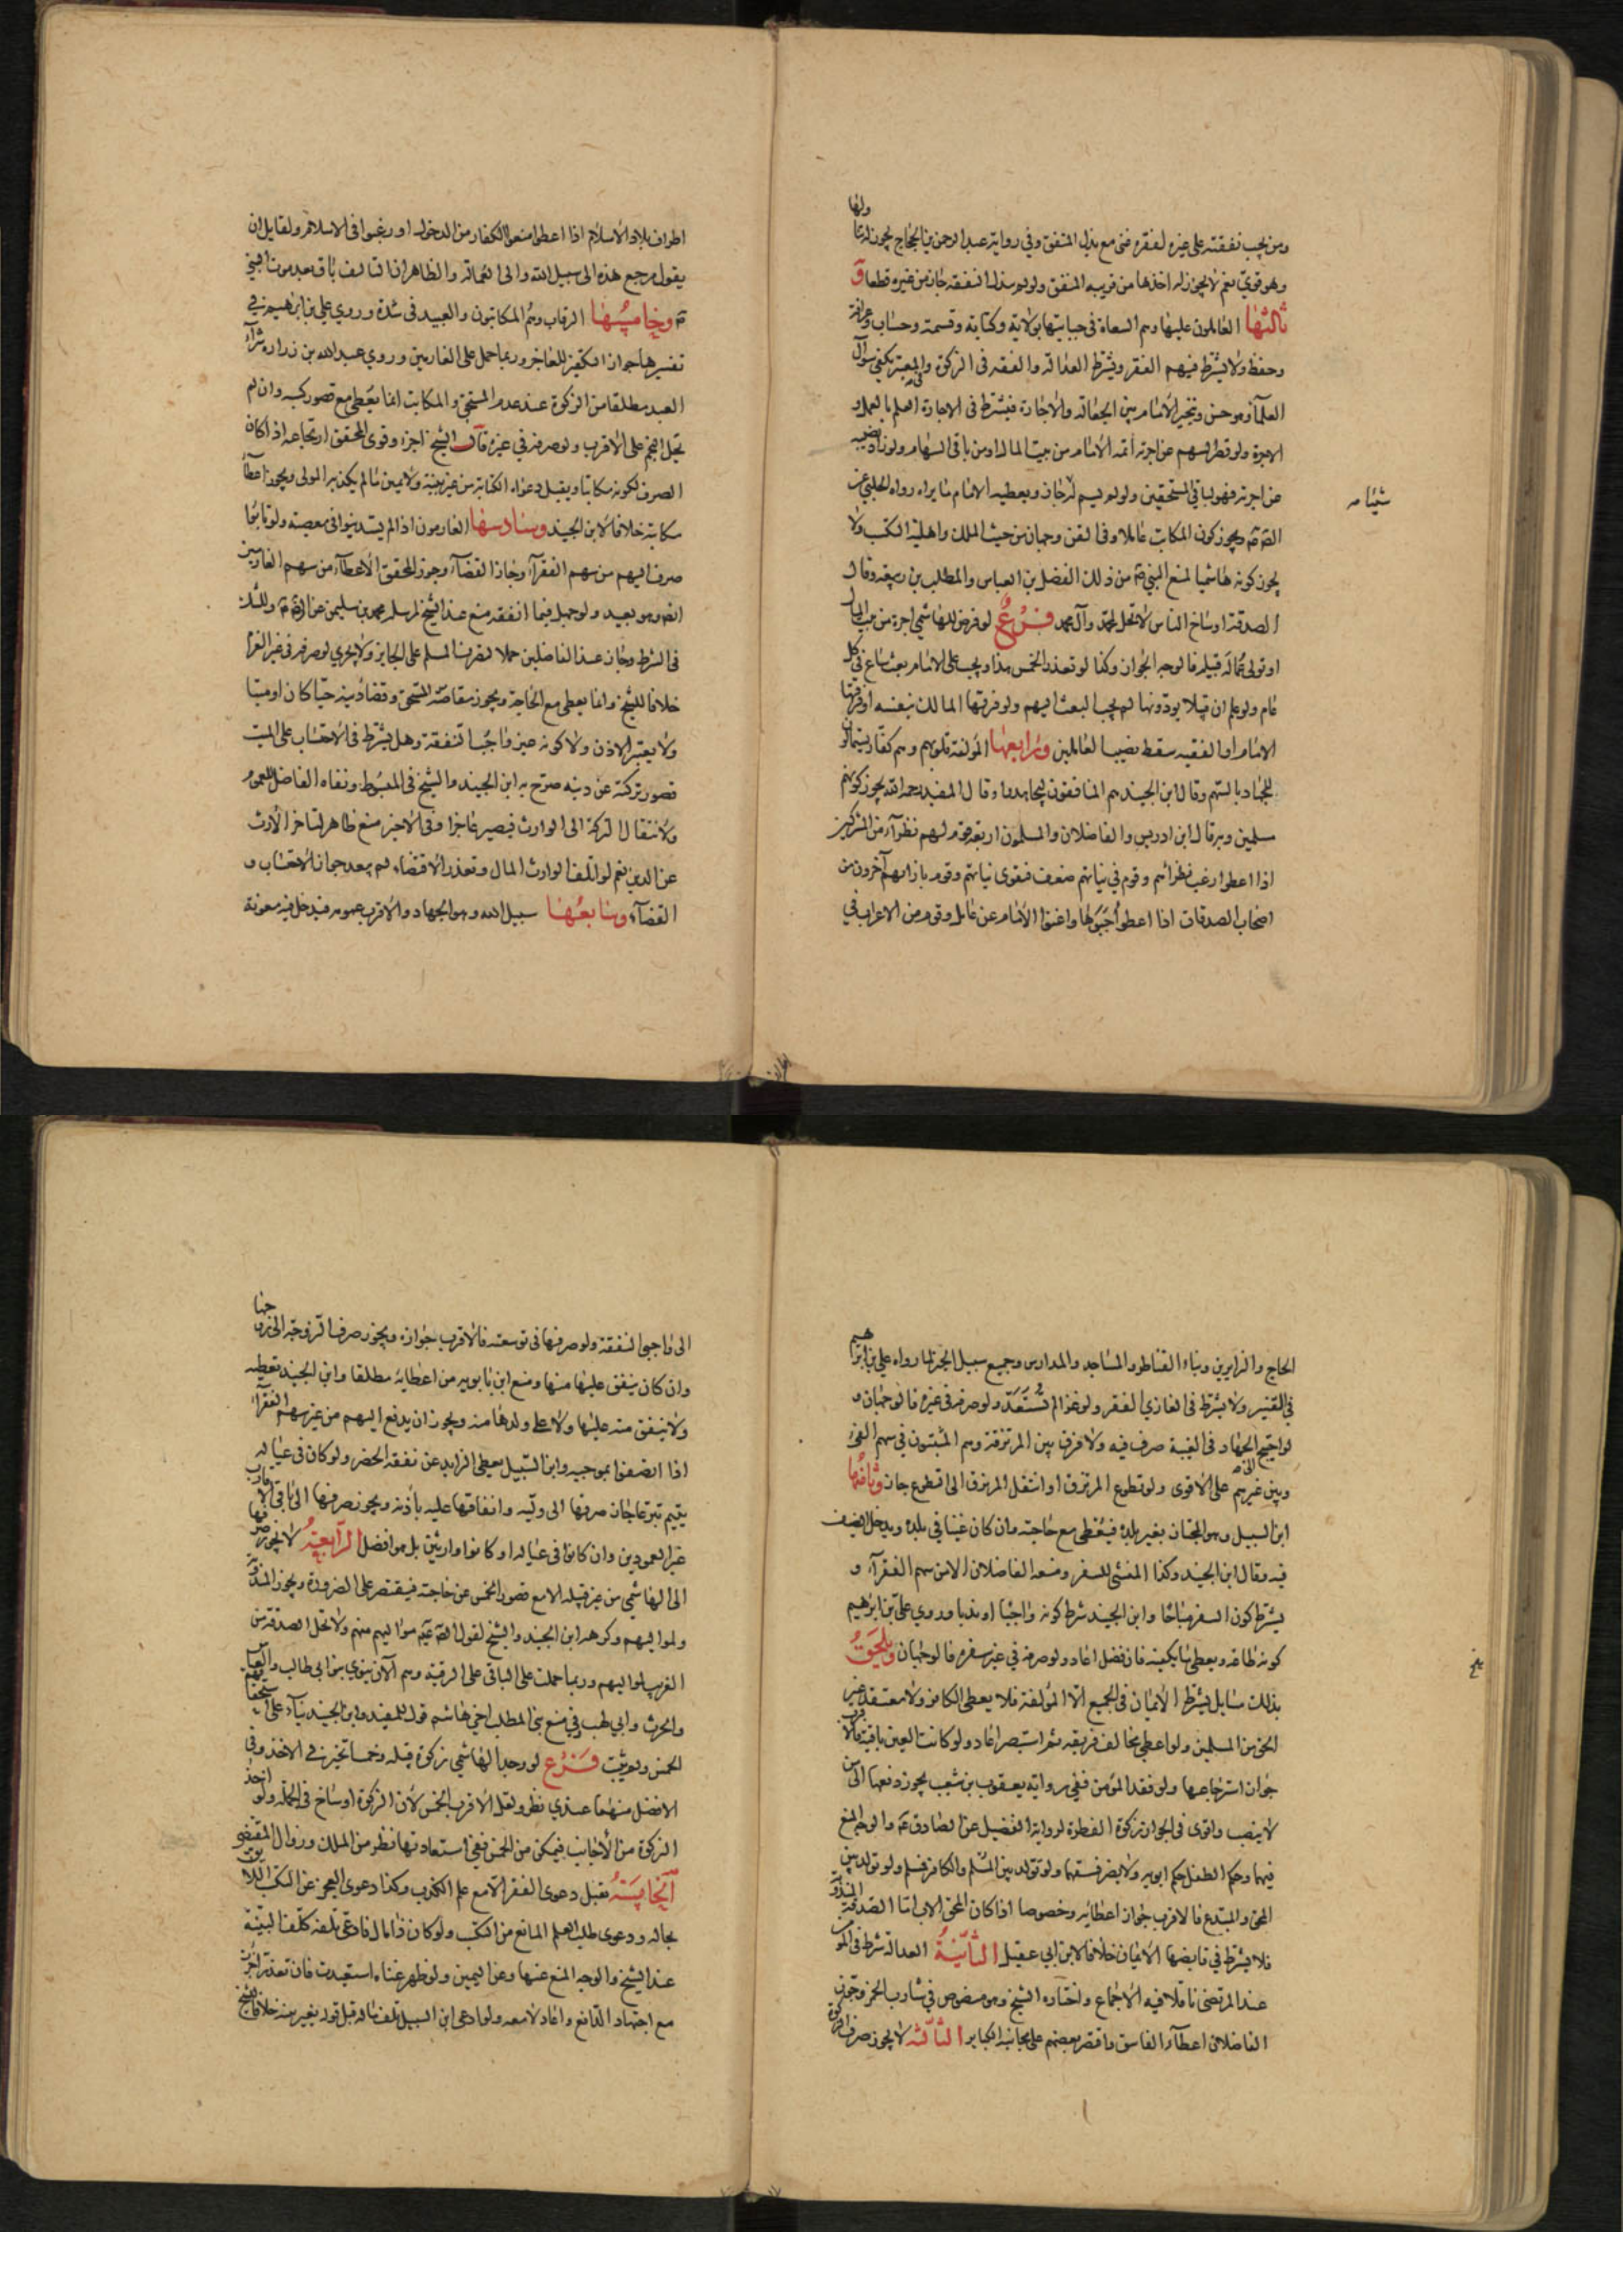 ومن يجب نفقته على غيره لفقره غني مع بذل المنفق وفي رواية عبد الرحمن بن الحجاج يجوز له تناولها
وهو قوي نعم لا يجوز له اخذها من قريبه المنفق ولو لم يبذل النفقة جاز من غيره قطعا و
ثالثها العاملون عليها وهم السعاة في جبايتها بولاية وكتابة وقسمة وحساب وعرافة
وحفظ ولا يشترط فيهم الفقر ويشترط العدالة والفقه في الزكوة والمعتبر يكفي سؤال
العلمآء وهو حسن ويتخير الامام بين الجعالة والاجارة فيشترط في الاجارة العلم بالعمل و
الاجرة ولو قصر السهم عن اجرته اتمه الامام من بيت المال او من باقي السهام ولو زاد نصيبه
عن اجرته فهو لباقي المستحقين ولو لم يسم له جاز ويعطيه الامام ما يراه رواه الحلبي عن
شيئا
الصم ويجوز كون المكاتب عاملا وفي القن وجهان من حيث الملك واهلية الكسب ولا
يجوز كونه هاشميا لمنع النبي ص من ذلك الفضل بن العباس والمطلب بن ربيعة وقال
الصدقة اوساخ الناس لا تحل لمحمد وآل محمد فرع لو فرض للهاشمي اجرة من بيت المال
او تولى عمالة قبيله فالوجه الجواز وكذا لو تعذر الخمس هذا ويجب على الامام بعث ساع في كل
عام ولو علم ان قبيلا يودونها لم يجب البعث اليهم ولو فرقها المالك بنفسه او فرقها
الامام او الفقيه سقط نصيب العاملين ورابعها المؤلفة قلوبهم وهم كفار يستمالون
للجهاد بالسهم وقال ابن الجنيد هم المنافقون ليجاهدوا وقال المفيد رحمه الله يجوز كونهم
مسلمين وبه قال ابن ادريس والفاضلان والمسلمون اربعة قوم لهم نظرآء من المشركين
اذا اعطوا رغب نظرائهم وقوم في نياتهم ضعف فتقوى نياتهم وقوم بازائهم آخرون من
اصحاب الصدقات اذا اعطوا جبوها واغنوا الامام عن عامل وقوم من الاعراب في
اطراف بلاد الاسلام اذا اعطوا منعوا الكفار من الدخول او رغبوا في الاسلام ولقايل ان
يقول مرجع هذه الى سبيل الله والى العمالة والظاهر ان التاليف باق بعد موت النبي
ص وخامسها الرقاب وهم المكاتبون والعبيد في شدة وروي علي بن ابراهيم في
تفسيرها جواز التكفير للعاجز وربما حمل على الغارمين وروي عبد الله بن زرارة شرآء
العبد مطلقا من الزكوة عند عدم المستحق والمكاتب انما يعطى مع قصور كسبه وان لم
يحل النجم على الاقرب ولو صرفه في غيره قال الشيخ اجزء وقوى المحقق ارتجاعه اذا كان
الصرف لكونه مكاتبا ويقبل دعواه الكتابة من غير بينة ولا يمين ما لم يكذبه المولى ويجوز اعطآء
مكاتبه خلافا لابن الجنيد وسادسها الغارمون اذا لم يستدينوا في معصية ولو تابوا
صرف اليهم من سهم الفقرآء وجاز القضآء وجوز المحقق الاعطآء من سهم الغارمين
ايضا وهو بعيد ولو جهل فيما انفقه منع عند الشيخ لمرسل محمد بن سليمن عن الرضا ع وللشك
في الشرط وجاز عند الفاضلين حملا لتصرف المسلم على الجايز ولا يجزي لو صرفه في غير الغرم
خلافا للشيخ وانما يعطى مع الحاجة ويجوز مقاصة المستحق وقضا دينه حيا كان او ميتا
ولا يعتبر الاذن ولا كونه حينئذ واجبا لنفقته وهل يشترط في الاحتساب على الميت
قصور تركته عن دينه صرح به ابن الجنيد والشيخ في المبسوط ونفاه الفاضل للعموم
ولانتقال التركة الى الوارث فيصير عاجزا وفي الاخير منع ظاهر لتاخر الارث
عن الدين نعم لو اتلف الوارث المال وتعذر الاقتضاء لم يبعد جواز الاحتساب و
القضآء وسابعها سبيل الله وهو الجهاد والاقرب عمومه فيدخل فيه معونة
الحاج والزايرين وبناء القناطر والمساجد والمدارس وجميع سبيل الخير لما رواه علي بن ابراهيم
في التفسير ولا يشترط في الغازي الفقر ولو غزا لم تستعد ولو صرفه في غيره فالوجهان و
لو احتيج الجهاد في الغيبة صرف فيه ولا فرق بين المرتزقة وهم المثبتون في سهم الفئ
وبين غيرهم على الاقوى ولو تطوع المرتزق او انتقل المرتزق الى التطوع جاز وثامنها
ابن السبيل وهو المجتاز بغير بلده فيعطى مع حاجته وان كان غنيا في بلده ويدخل الضيف
فيه وقال ابن الجنيد وكذا المنشئ للسفر ومنعه الفاضلان الا من سهم الفقرآء و
يشترط كون السفر مباحا وابن الجنيد شرط كونه واجبا او ندبا وروي علي بن ابراهيم
كونه طاعة ويعطى ما يكفيه فان فضل اعاد ولو صرفه في غير سفره فالوجهان ويلحق
بذلك مسايل يشترط الايمان في الجميع الا المؤلفة فلا يعطى الكافر ولا معتقد غير
الحق من المسلمين ولو اعطى مخالف فريقه ثم استبصر اعاد ولو كانت العين باقية فالاقرب
جواز استرجاعها ولو فقد المؤمن ففي رواية يعقوب بن شعيب يجوز دفعها الى من
لا ينصب واقوى في الجواز زكوة الفطرة لرواية الفضيل عن الصادق ع والوجه المنع
فيهما وحكم الطفل حكم ابويه ولا يضر فسقهما ولو تولد بين المسلم والكافر فمسلم ولو تولد بين
المحق والمبتدع فالاقرب جواز اعطائه وخصوصا اذا كان المحق الاب اما الصدقة المندوبة
فلا يشترط في قابضها الايمان خلافا لابن ابي عقيل الثانية العدالة شرط في المؤمن
عند المرتضى ناقلا فيه الاجماع واختاره الشيخ وهو منصوص في شارب الخمر وجوز
الفاضلان اعطآء الفاسق واقتصر بعضهم على مجانبة الكباير الثالثة لا يجوز صرف الزكوة
الى واجبي النفقة ولو صرفها في توسعته فالاقرب جوازه ويجوز صرف الزوجة الى زوجها
وان كان ينفق عليها منها ومنع ابن بابويه من اعطائه مطلقا وابن الجنيد تعطيه
ولا ينفق منه عليها ولا على ولدها منه ويجوز ان يدفع اليهم من غير سهم الفقرآء
اذا اتصفوا بموجبه وابن السبيل يعطى الزايد عن نفقة الحضر ولو كان في عياله
يتيم تبرعا جاز صرفها الى وليه وانفاقها عليه باذنه ويجوز صرفها الى باقي الاقارب
غير العمودين وان كانوا في عياله او كانوا وارثين بل هو افضل الرابعة لا يجوز صرفها
الى الهاشمي من غير قبيله الا مع قصور الخمس عن حاجته فيقتصر على الضرورة ويجوز المندوبة
ولمواليهم وكرهه ابن الجنيد والشيخ لقول الصم موالیهم منهم ولا تحل الصدقة من
الغريب لمواليهم وربما حملت على الباقي على الرقية وهم الآن بنوي بنو ابي طالب والعباس
والحرث وابي لهب وفي منع بني المطلب اخي هاشم قول للمفيد وابن الجنيد بنآء على استحقاقهم
الخمس ولم يثبت فرع لو وجد الهاشمي زكوة قبيله وخمسا تخير في الاخذ وفي
الافضل منهما عندي نظر ولعل الاقرب الخمس لان الزكوة اوساخ في الجملة ولو اخذ
الزكوة من الاجانب فتمكن من الخمس ففي استعادتها نظر من الملك وزوال المقتضي
الخامسة تقبل دعوى الفقر الا مع علم الكذب وكذا دعوى العجز عن الكسب اللايق
بحاله ودعوى طلب العلم المانع من الكسب ولو كان ذا مال فادعى تلفه كلف البينة
عند الشيخ والوجه المنع عنها وعن اليمين ولو ظهر غناه استعيدت فان تعذر اجزأت
مع اجتهاد الدافع واعاد لا معه ولو ادعى ابن السبيل تلف ماله قبل قوله بغير بينة خلافا للشيخ